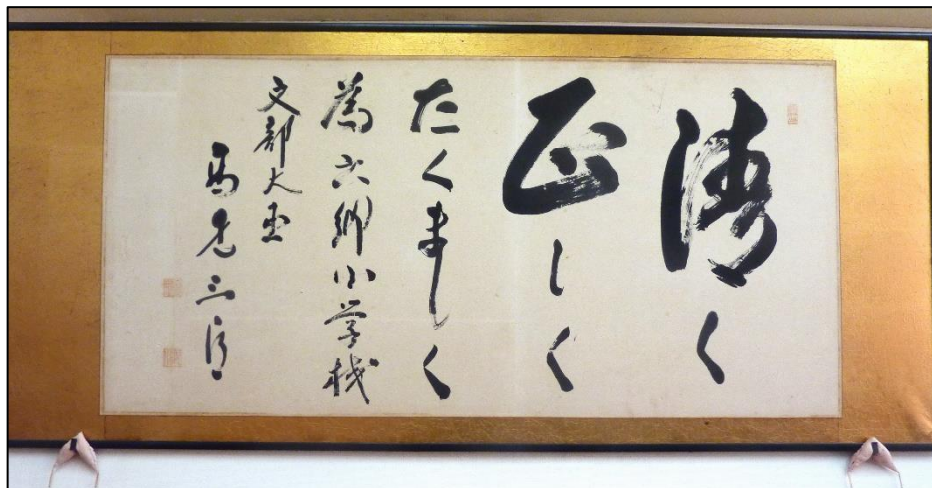 清く
正しく
たくましく
為六郷小学校
文部大臣
高見三郎